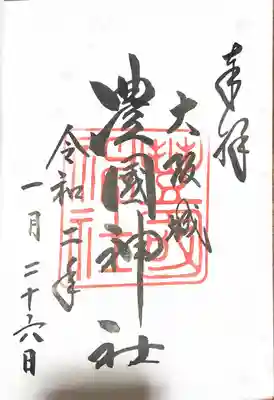 奉拝
大阪城
豊國神社
令和二年
一月二十六日